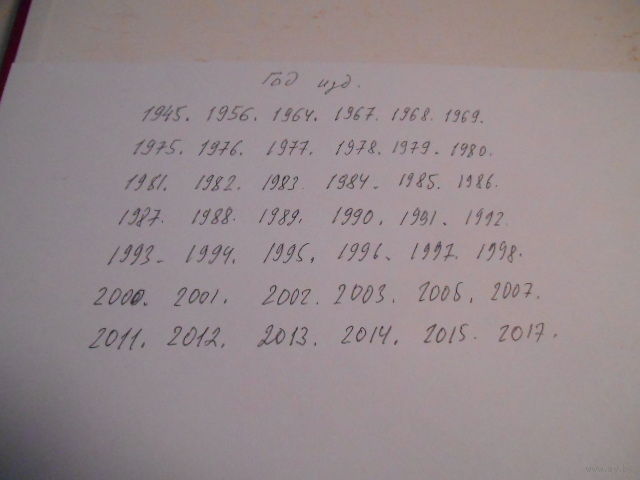 Год изд.
1945. 1956. 1964. 1967. 1968. 1969.
1975. 1976. 1977. 1978. 1979. 1980.
1981. 1982. 1983. 1984. 1985. 1986.
1987. 1988. 1989. 1990. 1991. 1992.
1993. 1994. 1995. 1996. 1997. 1998.
2000. 2001. 2002. 2003. 2005. 2007.
2011. 2012. 2013. 2014. 2015. 2017.